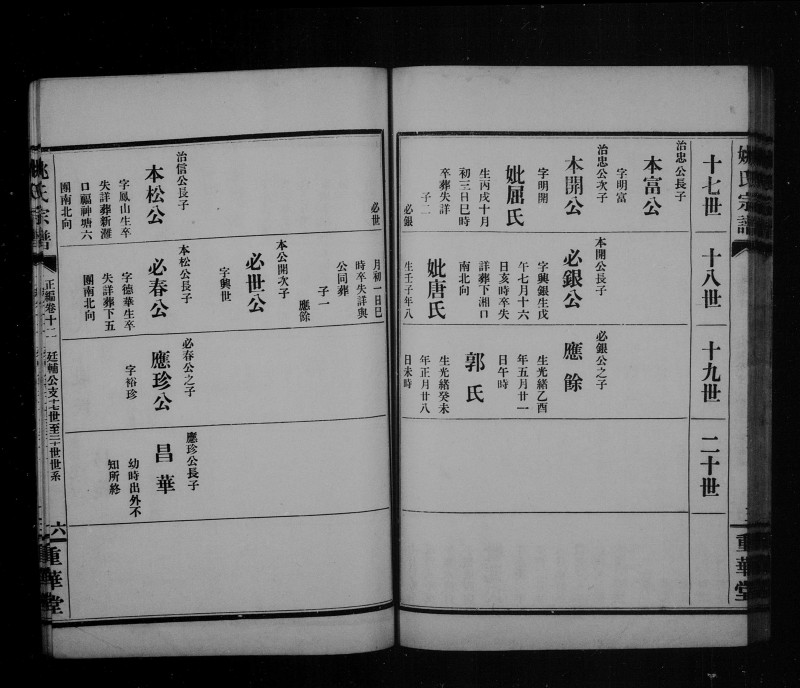 姚氏宗譜
重華堂
十七世
十八世
十九世
二十世
治忠公長子
本富公
字明富
治忠公次子
本開公
字明開
妣屈氏
生丙戌十月
初三日巳時
卒葬失詳
子二
必銀
必世
本開公長子
必銀公
字興銀生戌
午七月十六
日亥時卒失
詳葬下湘口
南北向
妣唐氏
生壬子年八
月初一日巳
時卒失詳與
公同葬
子一
應餘
必銀公之子
應餘
生光緒乙酉
年五月廿一
日午時
郭氏
生光緒癸未
年正月廿八
日未時
本公開次子
必世公
字興世
治信公長子
本松公
字鳳山生卒
失詳葬新灘
口福神塘六
團南北向
本松公長子
必春公
字德華生卒
失詳葬下五
團南北向
必春公之子
應珍公
字裕珍
應珍公長子
昌華
幼時出外不
知所終
姚氏宗譜
正編卷十二
廷輔公支十七世至二十世世系
六
重華堂